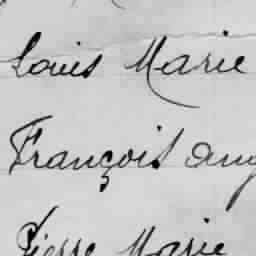 Louis Marie
François Aug
Pierre Marie